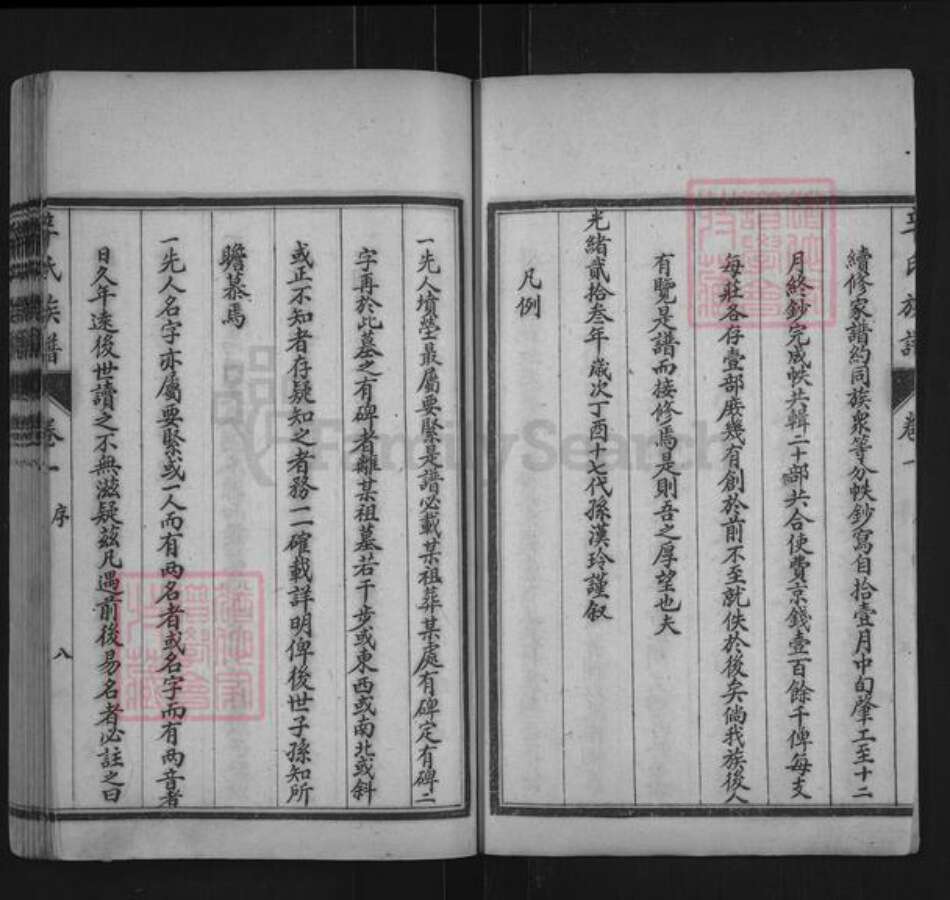 續修家譜約同族衆等分帙鈔寫自拾壹月中旬肇工至十二
月終鈔完成帙共輯二十部共合使費京錢壹百餘千俾每支
每莊各存壹部庶幾有創於前不至就佚於後矣倘我族後人
有覽是譜而接修焉是則吾之厚望也夫
光緒貳拾叁年歲次丁酉十七代孫漢玲謹叙
凡例
一先人墳塋最屬要緊是譜必載某祖葬某處有碑定有碑二
字再於此墓之有碑者離某祖墓若干步或東西或南北或斜
或正不知者存疑知之者務一二確載詳明俾後世子孫知所
瞻慕焉
一先人名字亦屬要緊或一人而有兩名者或名字而有兩音者
日久年遠後世讀之不無滋疑茲凡遇前後易名者必註之曰
氏族譜
卷一
序
八
FamilySearch